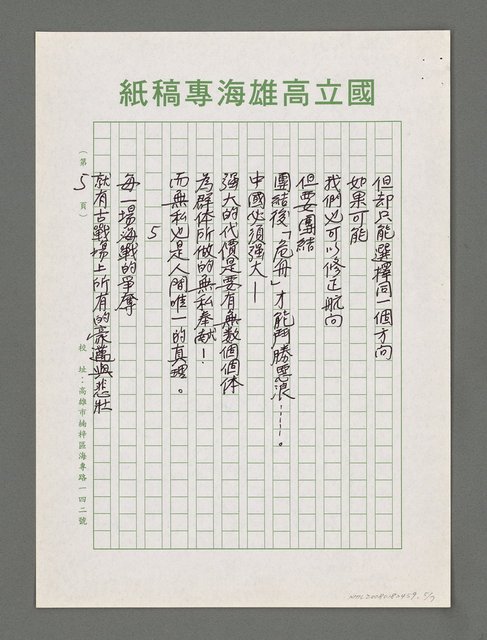 紙稿專海雄高立國
但却只能選擇同一個方向
如果可能
我們也可以修正航向
但要團結
團結後「危舟」才能鬥勝惡浪……。
中國必須强大—
强大的代價是要有無数個個体
為群体所做的無私奉献！
而無私也是人間唯一的真理。
5
每一場海戰的爭奪
就有古戰場上所有的豪邁與悲壯
（第 5 頁）
校 址：高雄市楠梓區海專路一四二號